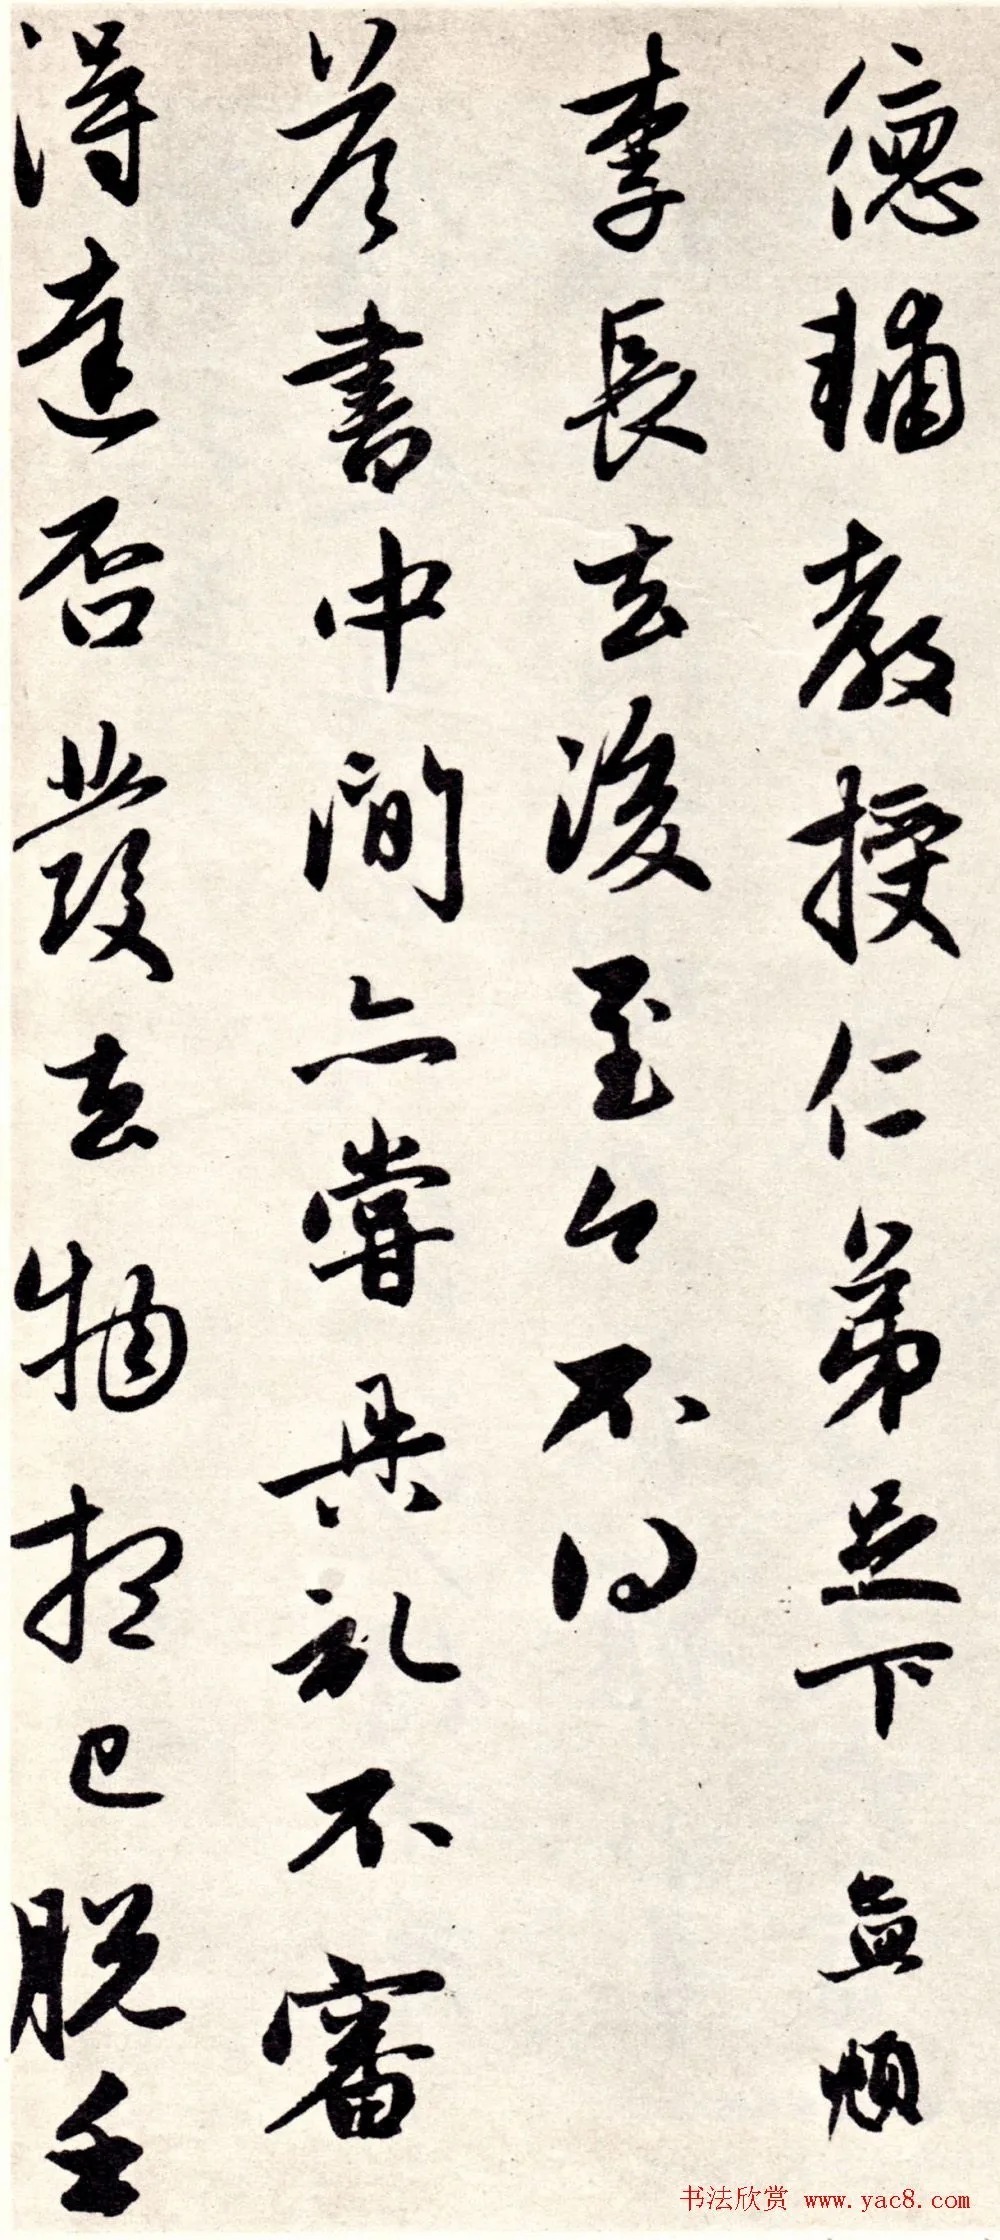 德輔教授仁弟足下 孟頫
李長去後至今不得
答書中間亦嘗具礼不審
得達否發去物想已脱
书法欣赏 www.yac8.com